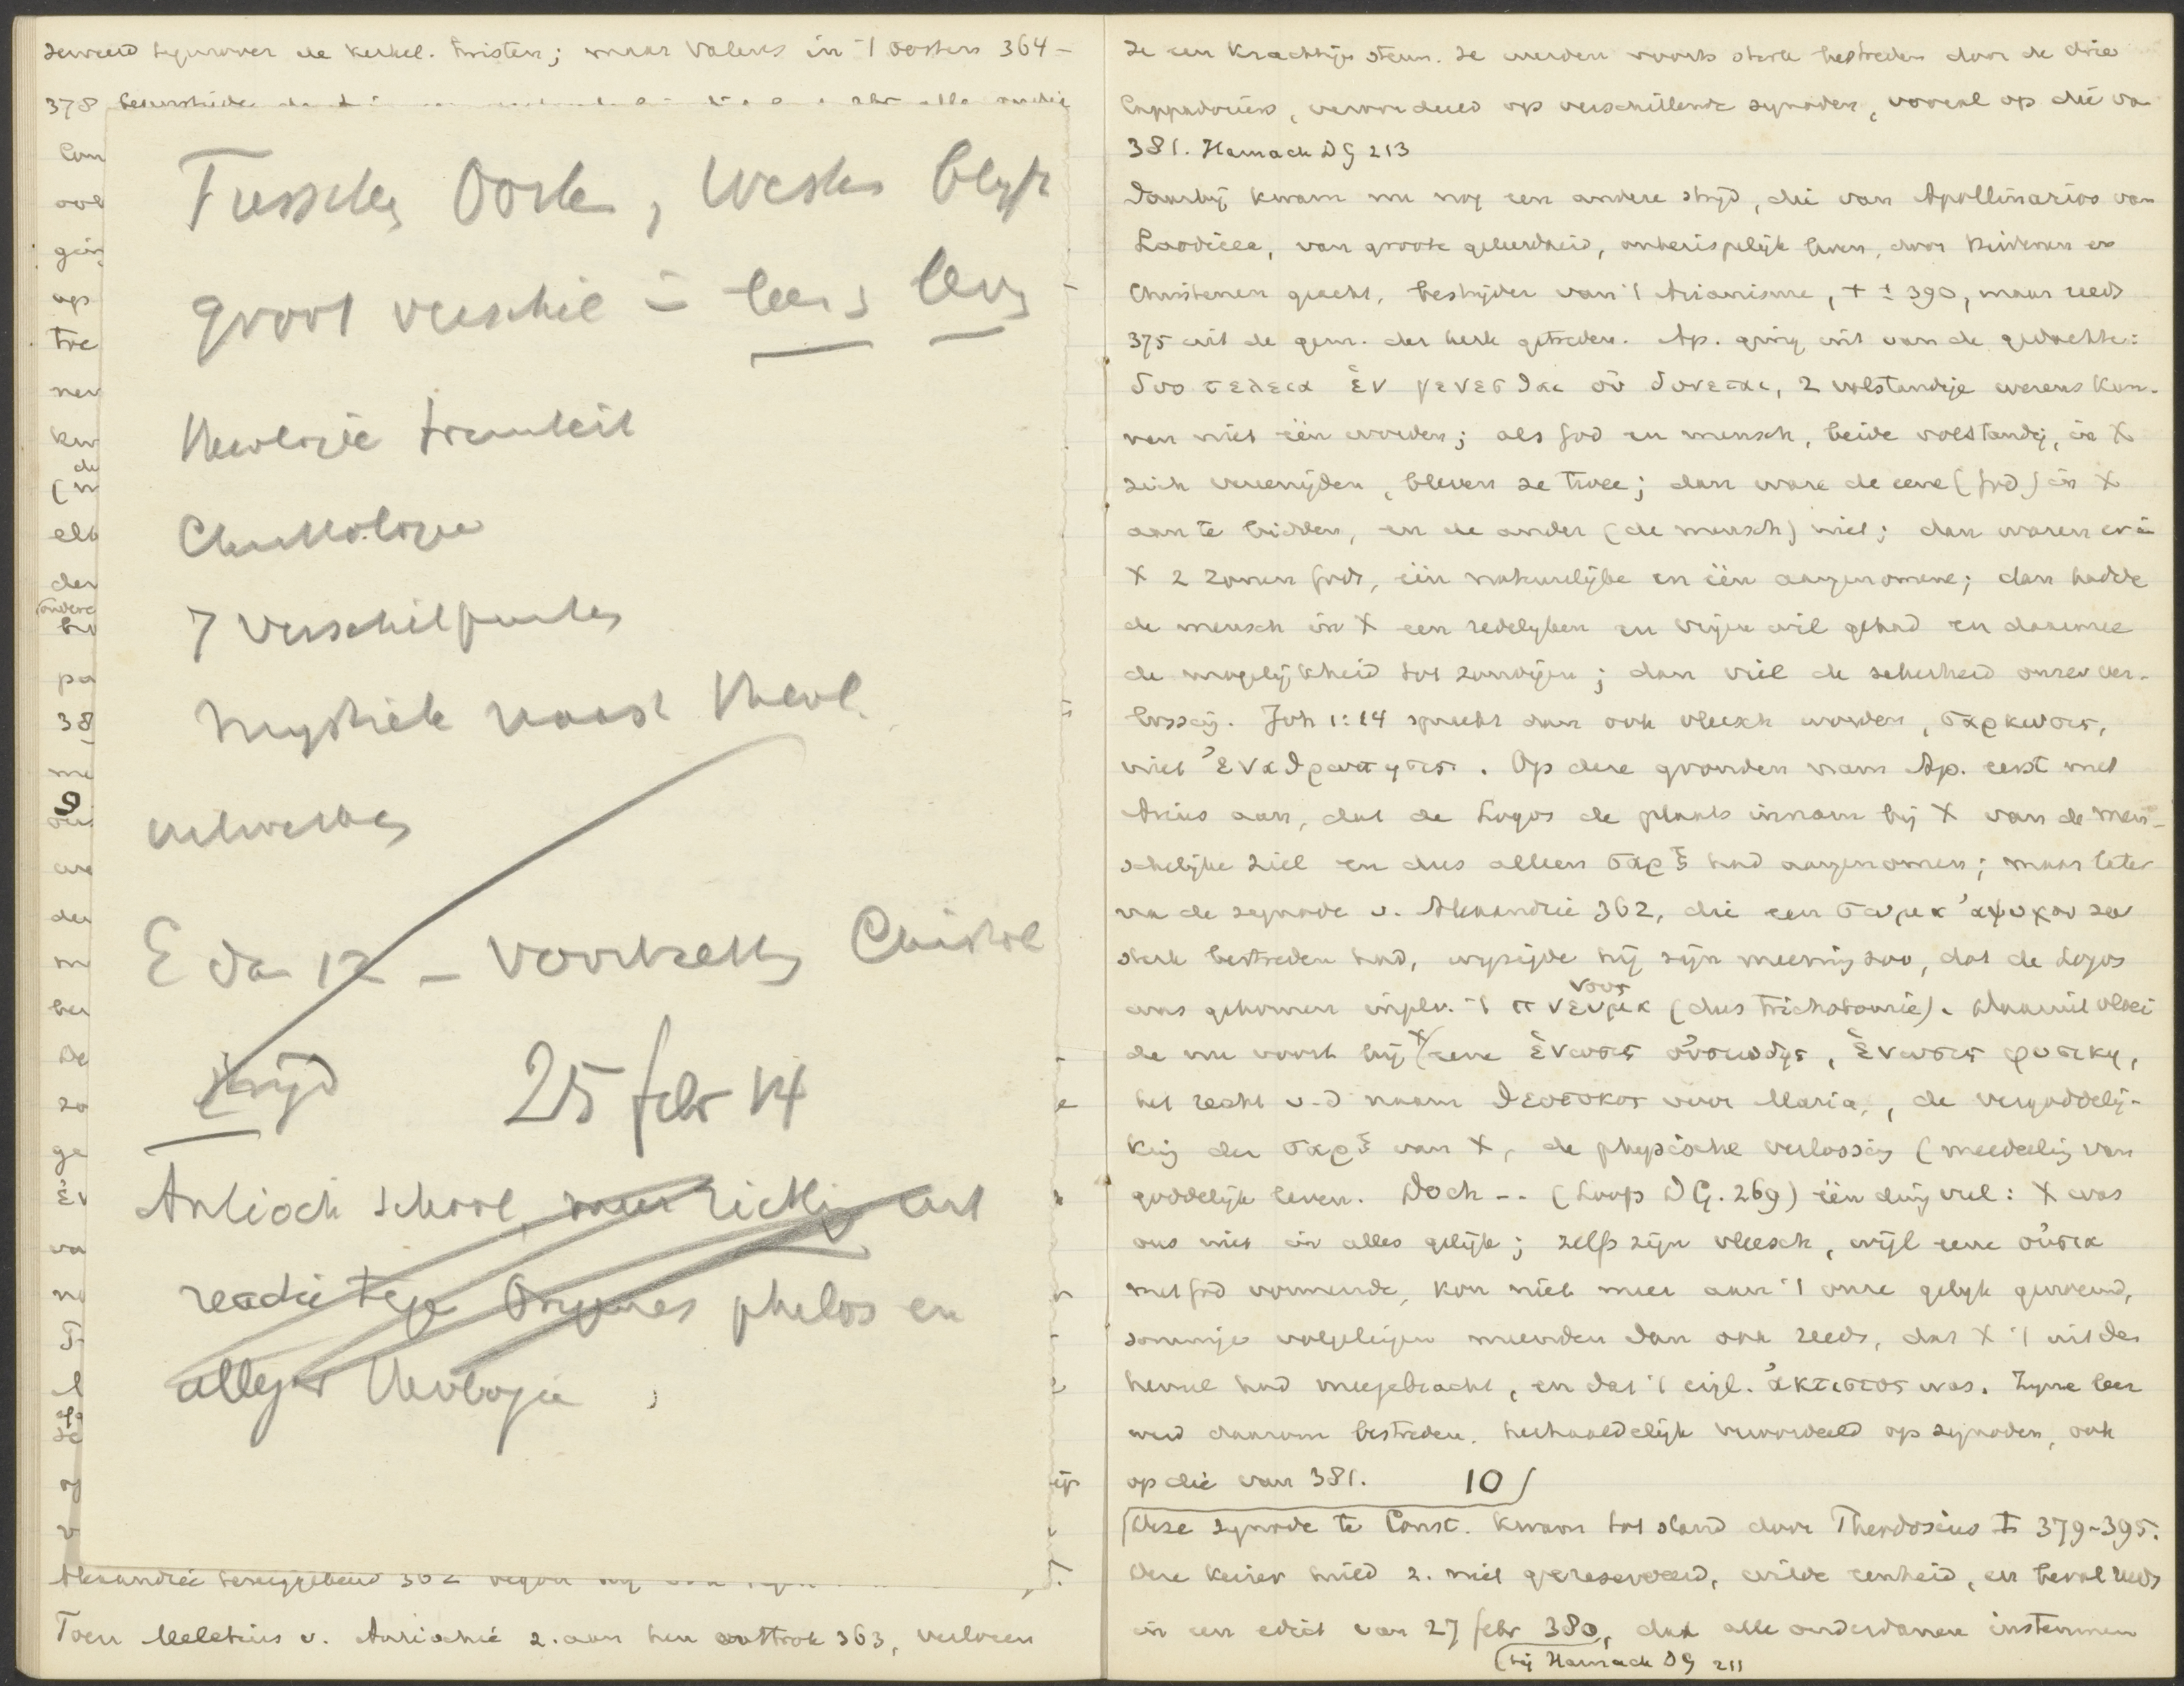 zeveerd tegenover de kerkel. twisten; maar Valens in 't oosten 364-
378
Tusschen Oosten, Westen blijft
groot verschil in leer, leven
theologie triniteit
Christologie
7 verschilpunten
Mystiek naast theol.
uitwerken
E van 12 – voortzetting Christol
strijd 25 febr 14
Antioch school, meer richting
reactie tegen Origenes philos en
alleg theologie
Toen Meletius v. Antiochië z. aan hen onttrok 363, verloren
ze een krachtige steun. Ze werden voorts sterk bestreden door de drie
Cappadociërs, veroordeeld op verschillende synoden, vooral op die van
381. Harnack DG 213
Daarbij kwam nu nog een andere strijd, die van Apollinarios van
Laodicea, van groote geleerdheid, onberispelijk leven, door heidenen en
Christenen geacht, bestrijder van 't Arianisme, † ± 390, maar reeds
375 uit de gem. der kerk getreden. Ap. ging uit van de gedachte:
δυο τελεια ἑν γενεσθαι οὐ δυνεται, 2 volstandige wezens kun-
nen niet één worden; als God en mensch, beide volstandig, in X
zich vereenigden, bleven ze twee; dan ware de eene (God) in X
aan te bidden, en de ander (de mensch) niet; dan waren er in
X 2 zonen Gods, één natuurlijke en één aangenomene; dan hadde
de mensch in X een redelijken en vrijen wil gehad en daarmee
de mogelijkheid tot zondigen; dan viel de zekerheid onzer ver-
lossing. Joh 1:14 spreekt dan ook vleesch worden, σαρκωσις,
niet ἐνανθρωπησις. Op deze gronden nam Ap. eerst met
Arius aan, dat de Logos de plaats innam bij X van de men-
schelijke ziel en dus alleen σαρξ had aangenomen; maar later
na de synode v. Alexandrië 362, die een σωμα ἀψυχον zeer
sterk bestreden had, wijzigde hij zijn meening zoo, dat de Logos
νους
was gekomen inplv. 't πνευμα (dus trichotomie). Daaruit vloei
de nu voort bij X eene ἑνωσις οὐσιωδης, ἑνωσις φυσικη,
het recht v. d naam θεοτοκος voor Maria, de vergoddelij-
king der σαρξ van X, de physische verlossing (meedeeling van
goddelijk leven. Doch -- (Loofs DG. 269) één ding viel: X was
ons niet in alles gelijk; zelfs zijn vleesch, wijl eene οὐσια
met God vormende, kon niet meer aan 't onze gelijk geweest,
sommige volgelingen meenden dan ook reeds, dat X 't uit den
hemel had meegebracht, en dat 't eigl. ἀκτιστος was. Zijne leer
werd daarom bestreden, herhaaldelijk veroordeeld op synoden, ook
op die van 381. 10
Deze synode te Const. kwam tot stand door Theodosius I 379-395.
Deze keizer hield z. niet gereserveerd, wilde eenheid, en beval reeds
in een edict van 27 febr 380, dat alle onderdanen instemmen
(bij Harnack DG 211